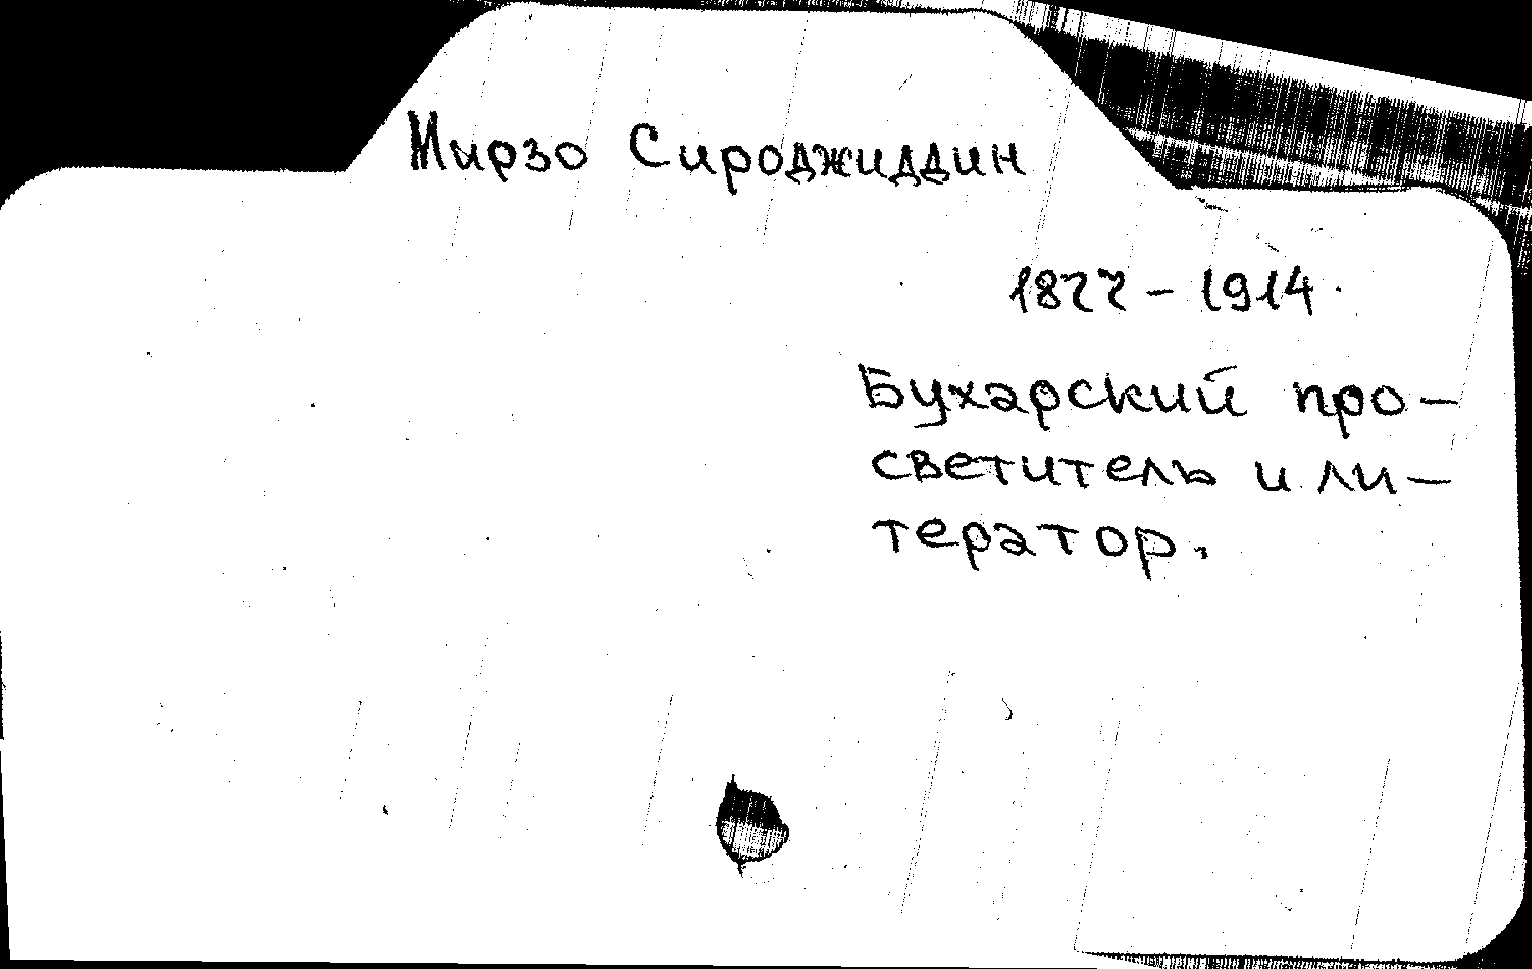 Мирзо Сироджиддин
1877 – 1914.
Бухарский про-
светитель и ли-
тератор.